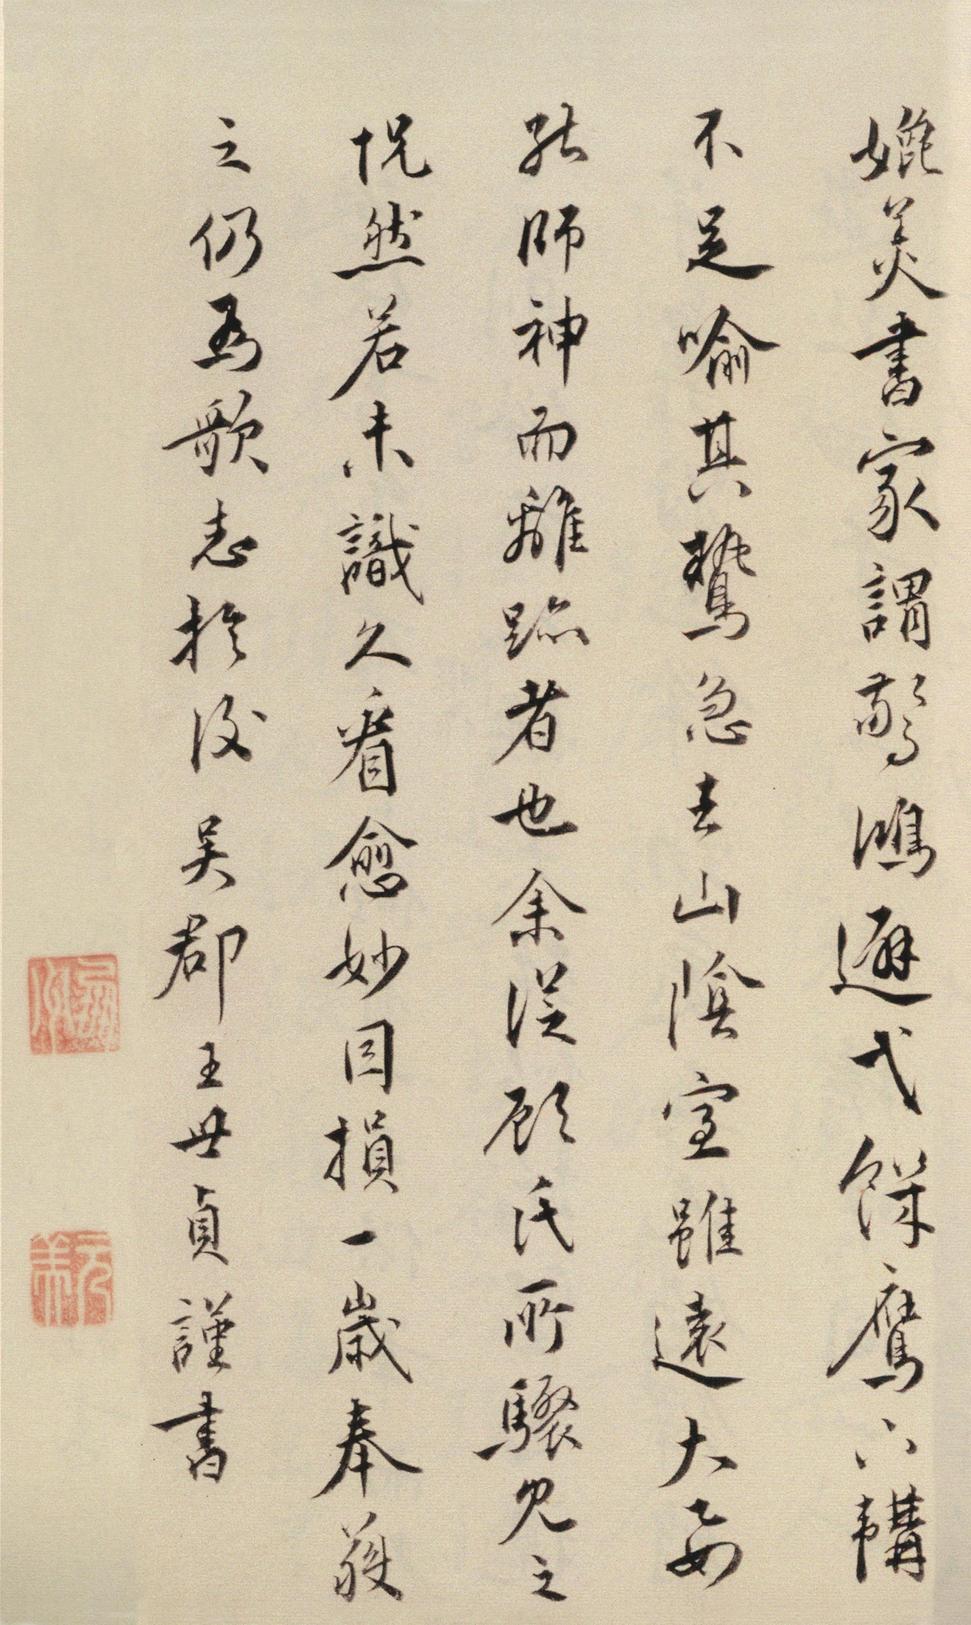 媲美書家謂驚鴻避弋餓鷹下韝
不足喻其鷙急去山陰室雖遠大要
能師神而離跡者也余從顧氏所驟見之
怳然若未識久看愈妙因損一歲奉獲
之仍為歌志於後吳郡王世貞謹書
元美